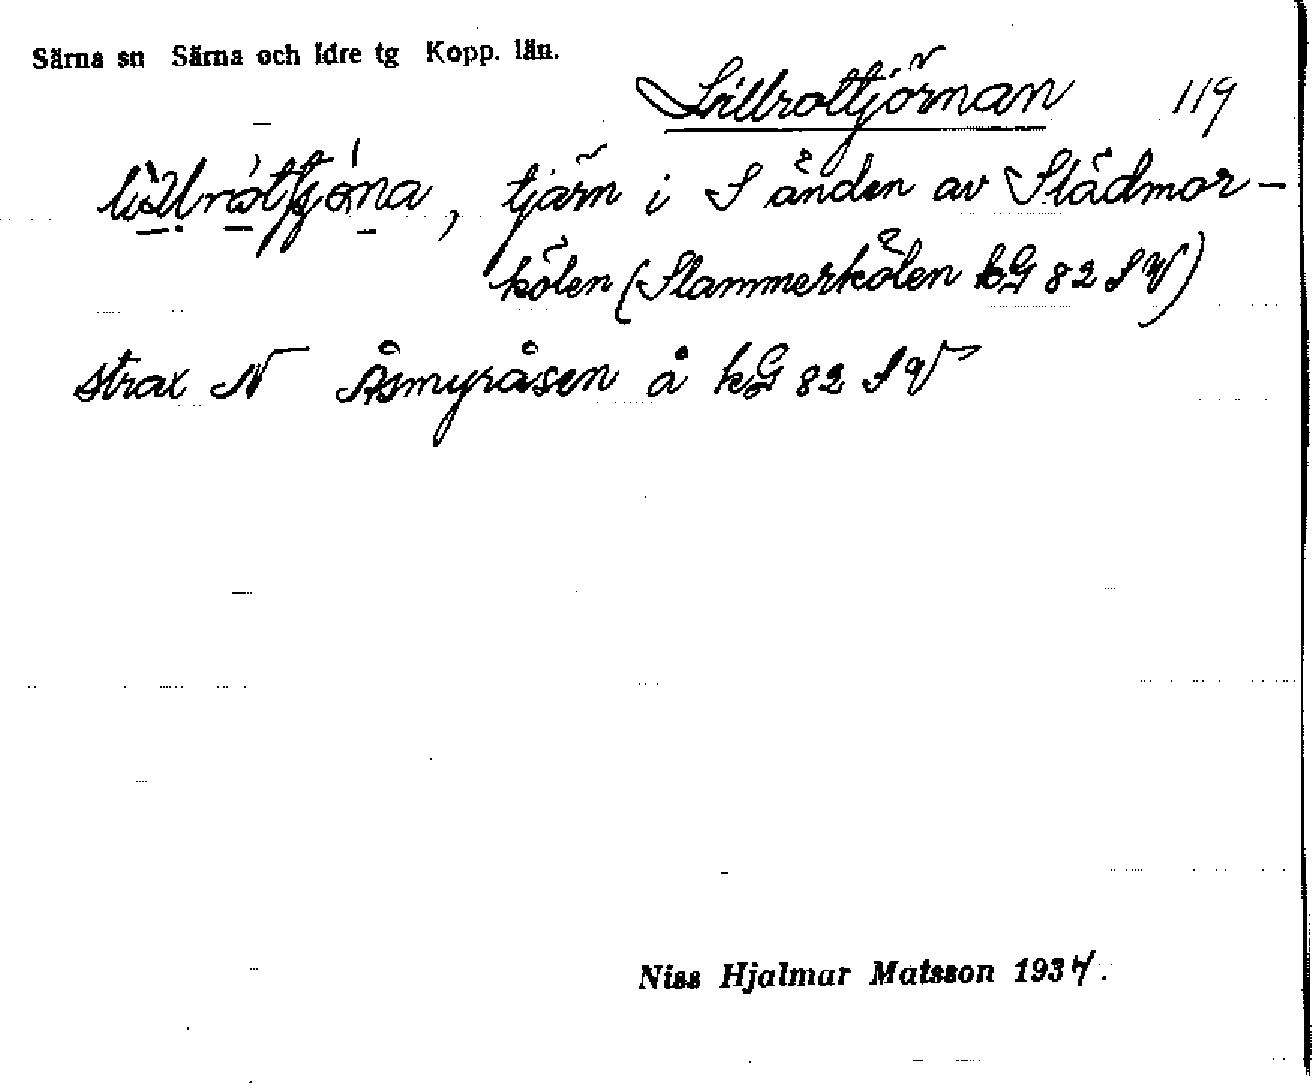 Särna sn Särna och Idre tg Kopp. län.
Lillrottjörnan 119
tjärn i S änden av Städmor-
kölen (Stammerkölen kG 82 SV)
strax N Åsmyråsen å kG 82 SV
Niss Hjalmar Matsson 1934.